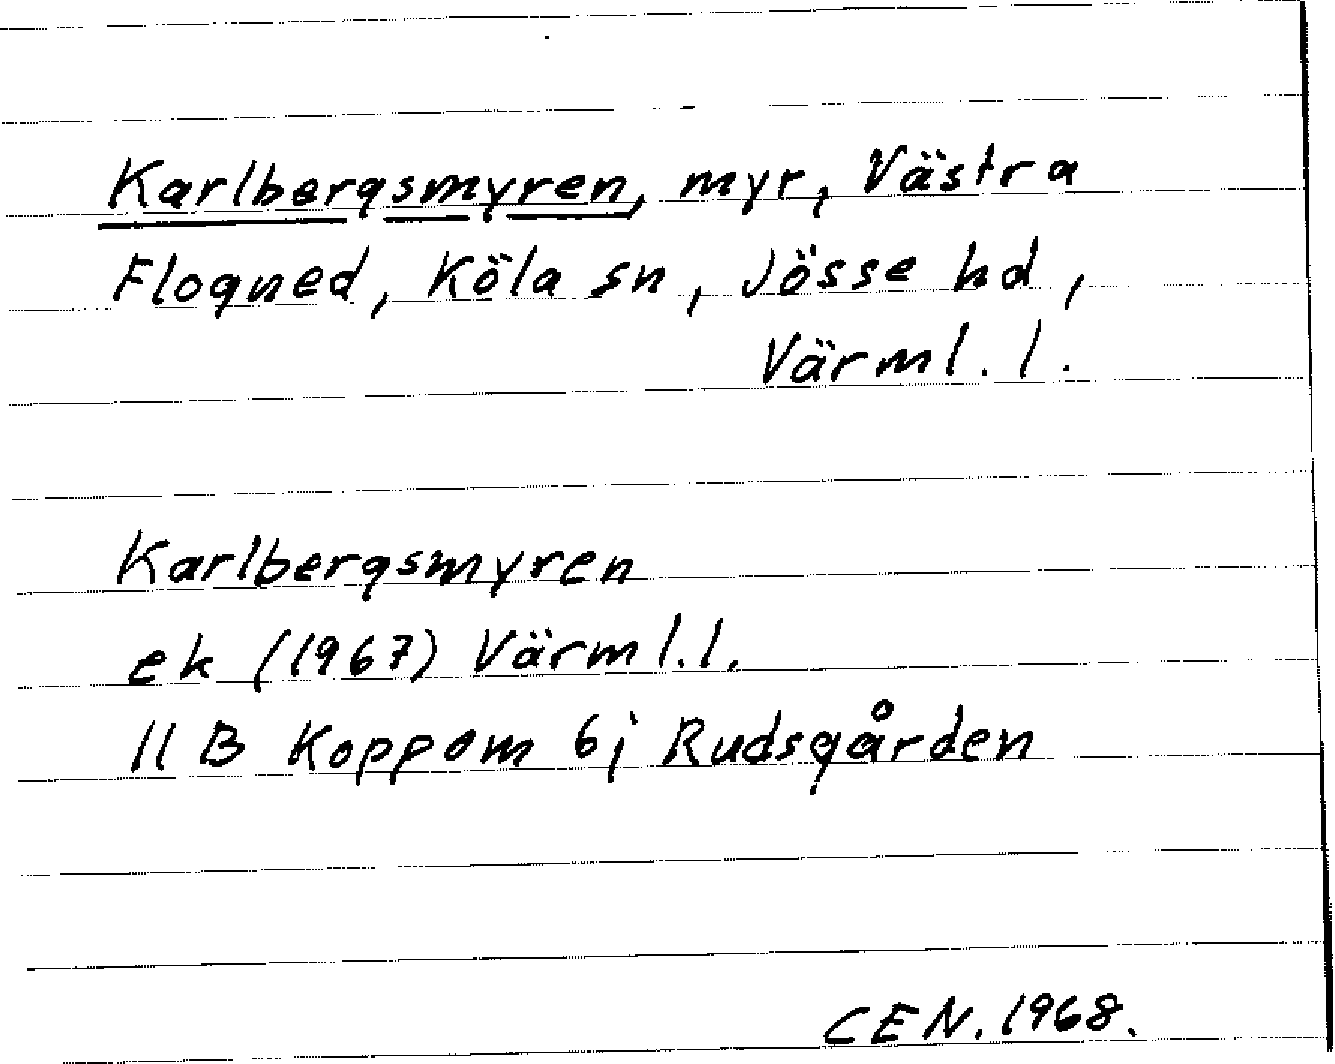 Karlbergsmyren, myr, Västra
Flogned, Köla sn, Jösse hd,
Värml. l.
Karlbergsmyren
ek (1967) Värml. l.
11 B Koppom 6j Rudsgården
CEN. 1968.